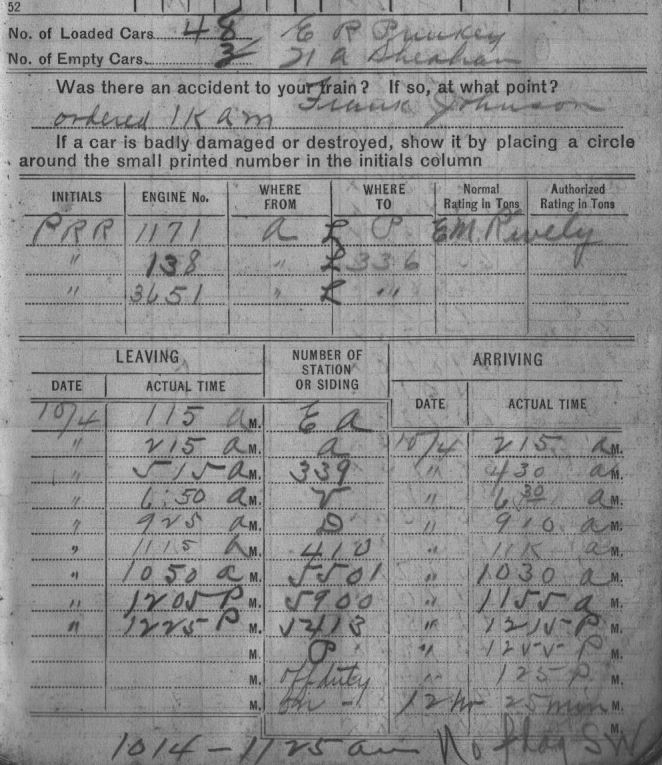 52
No. of Loaded Cars 48 E R
No. of Empty Cars 3 A Sheahan
Was there an accident to your train? If so, at what point?
Frank Johnson
ordered 1 K a m
If a car is badly damaged or destroyed, show it by placing a circle
around the small printed number in the initials column
INITIALS ENGINE No. WHERE FROM WHERE TO Normal Rating in Tons Authorized Rating in Tons
PRR 1171 a L P EM. Rively
" 138 " L 336
" 3651 " L "
LEAVING NUMBER OF STATION OR SIDING ARRIVING
DATE ACTUAL TIME DATE ACTUAL TIME
10/4 115 a M. E a
" 215 a M. a 10/4 215 a M.
" 515 a M. 339 " 430 a M.
" 6:50 a M. V " 6 30 a M.
" 925 a M. D " 910 a M.
" 1115 a M. 410 " 11K a M.
" 1050 a M. 5501 " 1030 a M.
" 1205 P M. 5900 " 1155 a M.
" 1225 P M. " 1215 P M.
M. P " 1255 P M.
M. off duty " 125 P M.
M. on - 12 hr 25 min M.
M.
1014 - 1125 am No flag SW